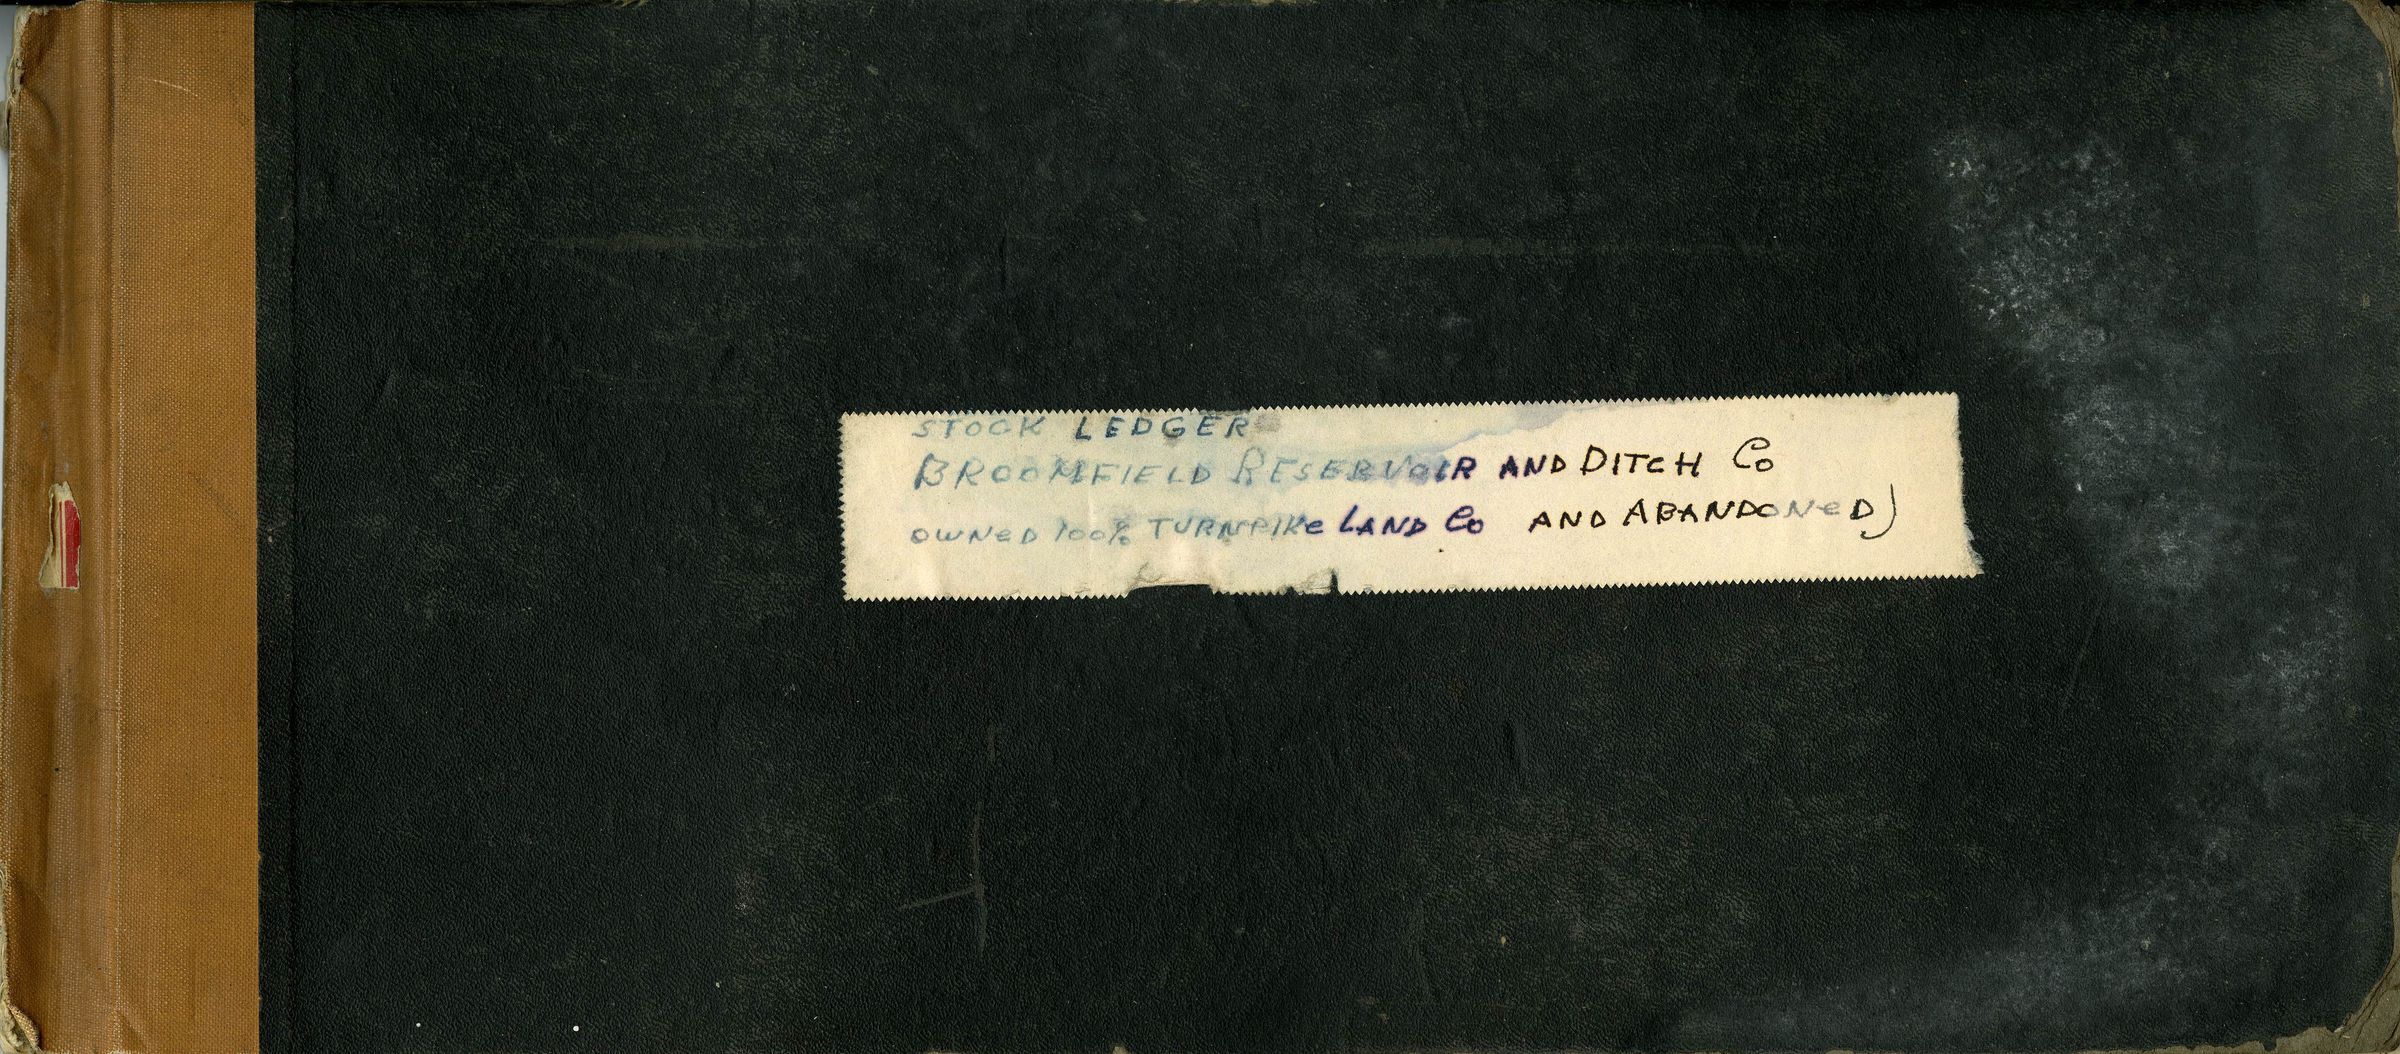 STOCK LEDGER
BROOMFIELD RESERVOIR AND DITCH Co
OWNeD 100% TURNPIKe LAND Co AND ABANDONeD)